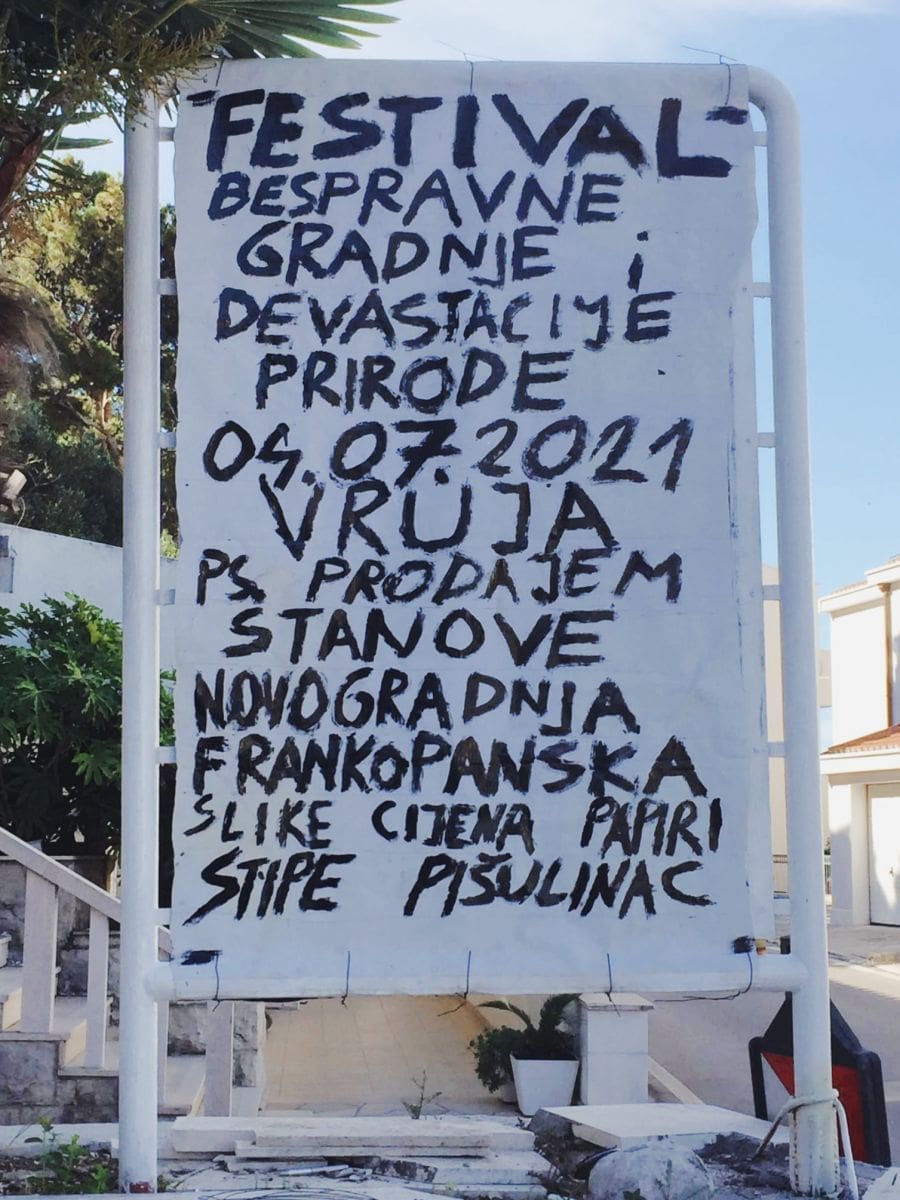 "FESTIVAL"
BESPRAVNE
GRADNJE i
DEVASTACIJE
PRIRODE
04.07.2021
VRUJA
PS. PRODAJEM
STANOVE
NOVOGRADNJA
FRANKOPANSKA
SLIKE CIJENA PAPIRI
STIPE PIŠULINAC